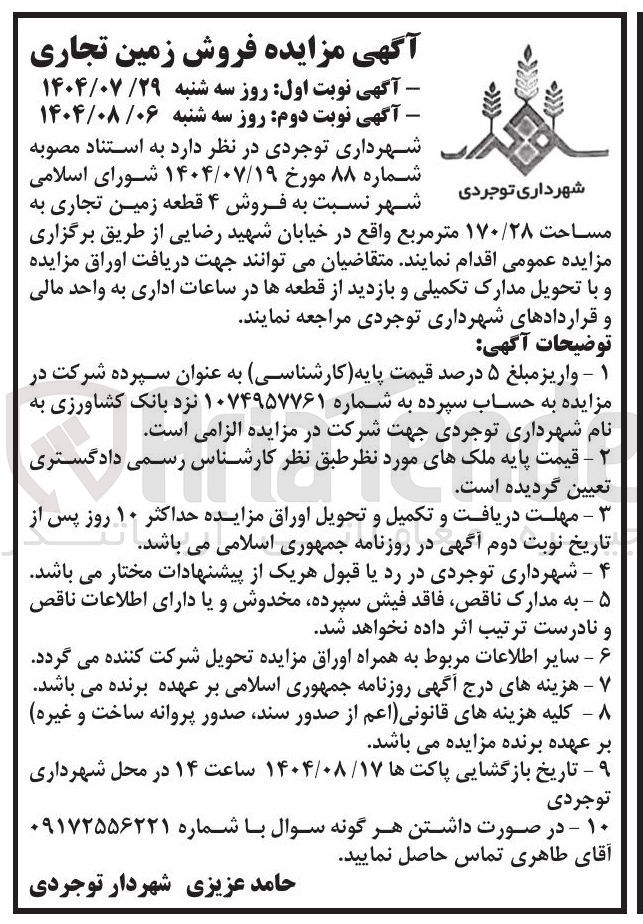 آگهی مزایده فروش زمین تجاری
- آگهی نوبت اول: روز سه شنبه ۱۴۰۴/۰۷/۲۹
- آگهی نوبت دوم: روز سه شنبه ۱۴۰۴/۰۸/۰۶
شهرداری توجردی
شهرداری توجردی در نظر دارد به استناد مصوبه
شماره ۸۸ مورخ ۱۴۰۴/۰۷/۱۹ شورای اسلامی
شهر نسبت به فروش ۴ قطعه زمین تجاری به
مساحت ۱۷۰/۲۸ مترمربع واقع در خیابان شهید رضایی از طریق برگزاری
مزایده عمومی اقدام نمایند. متقاضیان می توانند جهت دریافت اوراق مزایده
و با تحویل مدارک تکمیلی و بازدید از قطعه ها در ساعات اداری به واحد مالی
و قراردادهای شهرداری توجردی مراجعه نمایند.
توضیحات آگهی:
۱ - واریزمبلغ ۵ درصد قیمت پایه(کارشناسی) به عنوان سپرده شرکت در
مزایده به حساب سپرده به شماره ۱۰۷۴۹۵۷۷۶۱ نزد بانک کشاورزی به
نام شهرداری توجردی جهت شرکت در مزایده الزامی است.
۲ - قیمت پایه ملک های مورد نظرطبق نظر کارشناس رسمی دادگستری
تعیین گردیده است.
۳ - مهلت دریافت و تکمیل و تحویل اوراق مزایده حداکثر ۱۰ روز پس از
تاریخ نوبت دوم آگهی در روزنامه جمهوری اسلامی می باشد.
۴ - شهرداری توجردی در رد یا قبول هریک از پیشنهادات مختار می باشد.
۵ - به مدارک ناقص، فاقد فیش سپرده، مخدوش و یا دارای اطلاعات ناقص
و نادرست ترتیب اثر داده نخواهد شد.
۶ - سایر اطلاعات مربوط به همراه اوراق مزایده تحویل شرکت کننده می گردد.
۷ - هزینه های درج آگهی روزنامه جمهوری اسلامی بر عهده برنده می باشد.
۸ - کلیه هزینه های قانونی(اعم از صدور سند، صدور پروانه ساخت و غیره)
بر عهده برنده مزایده می باشد.
۹ - تاریخ بازگشایی پاکت ها ۱۴۰۴/۰۸/۱۷ ساعت ۱۴ در محل شهرداری
توجردی
۱۰ - در صورت داشتن هر گونه سوال با شماره ۰۹۱۷۲۵۵۶۲۲۱
آقای طاهری تماس حاصل نمایید.
حامد عزیزی شهردار توجردی
AriaTender